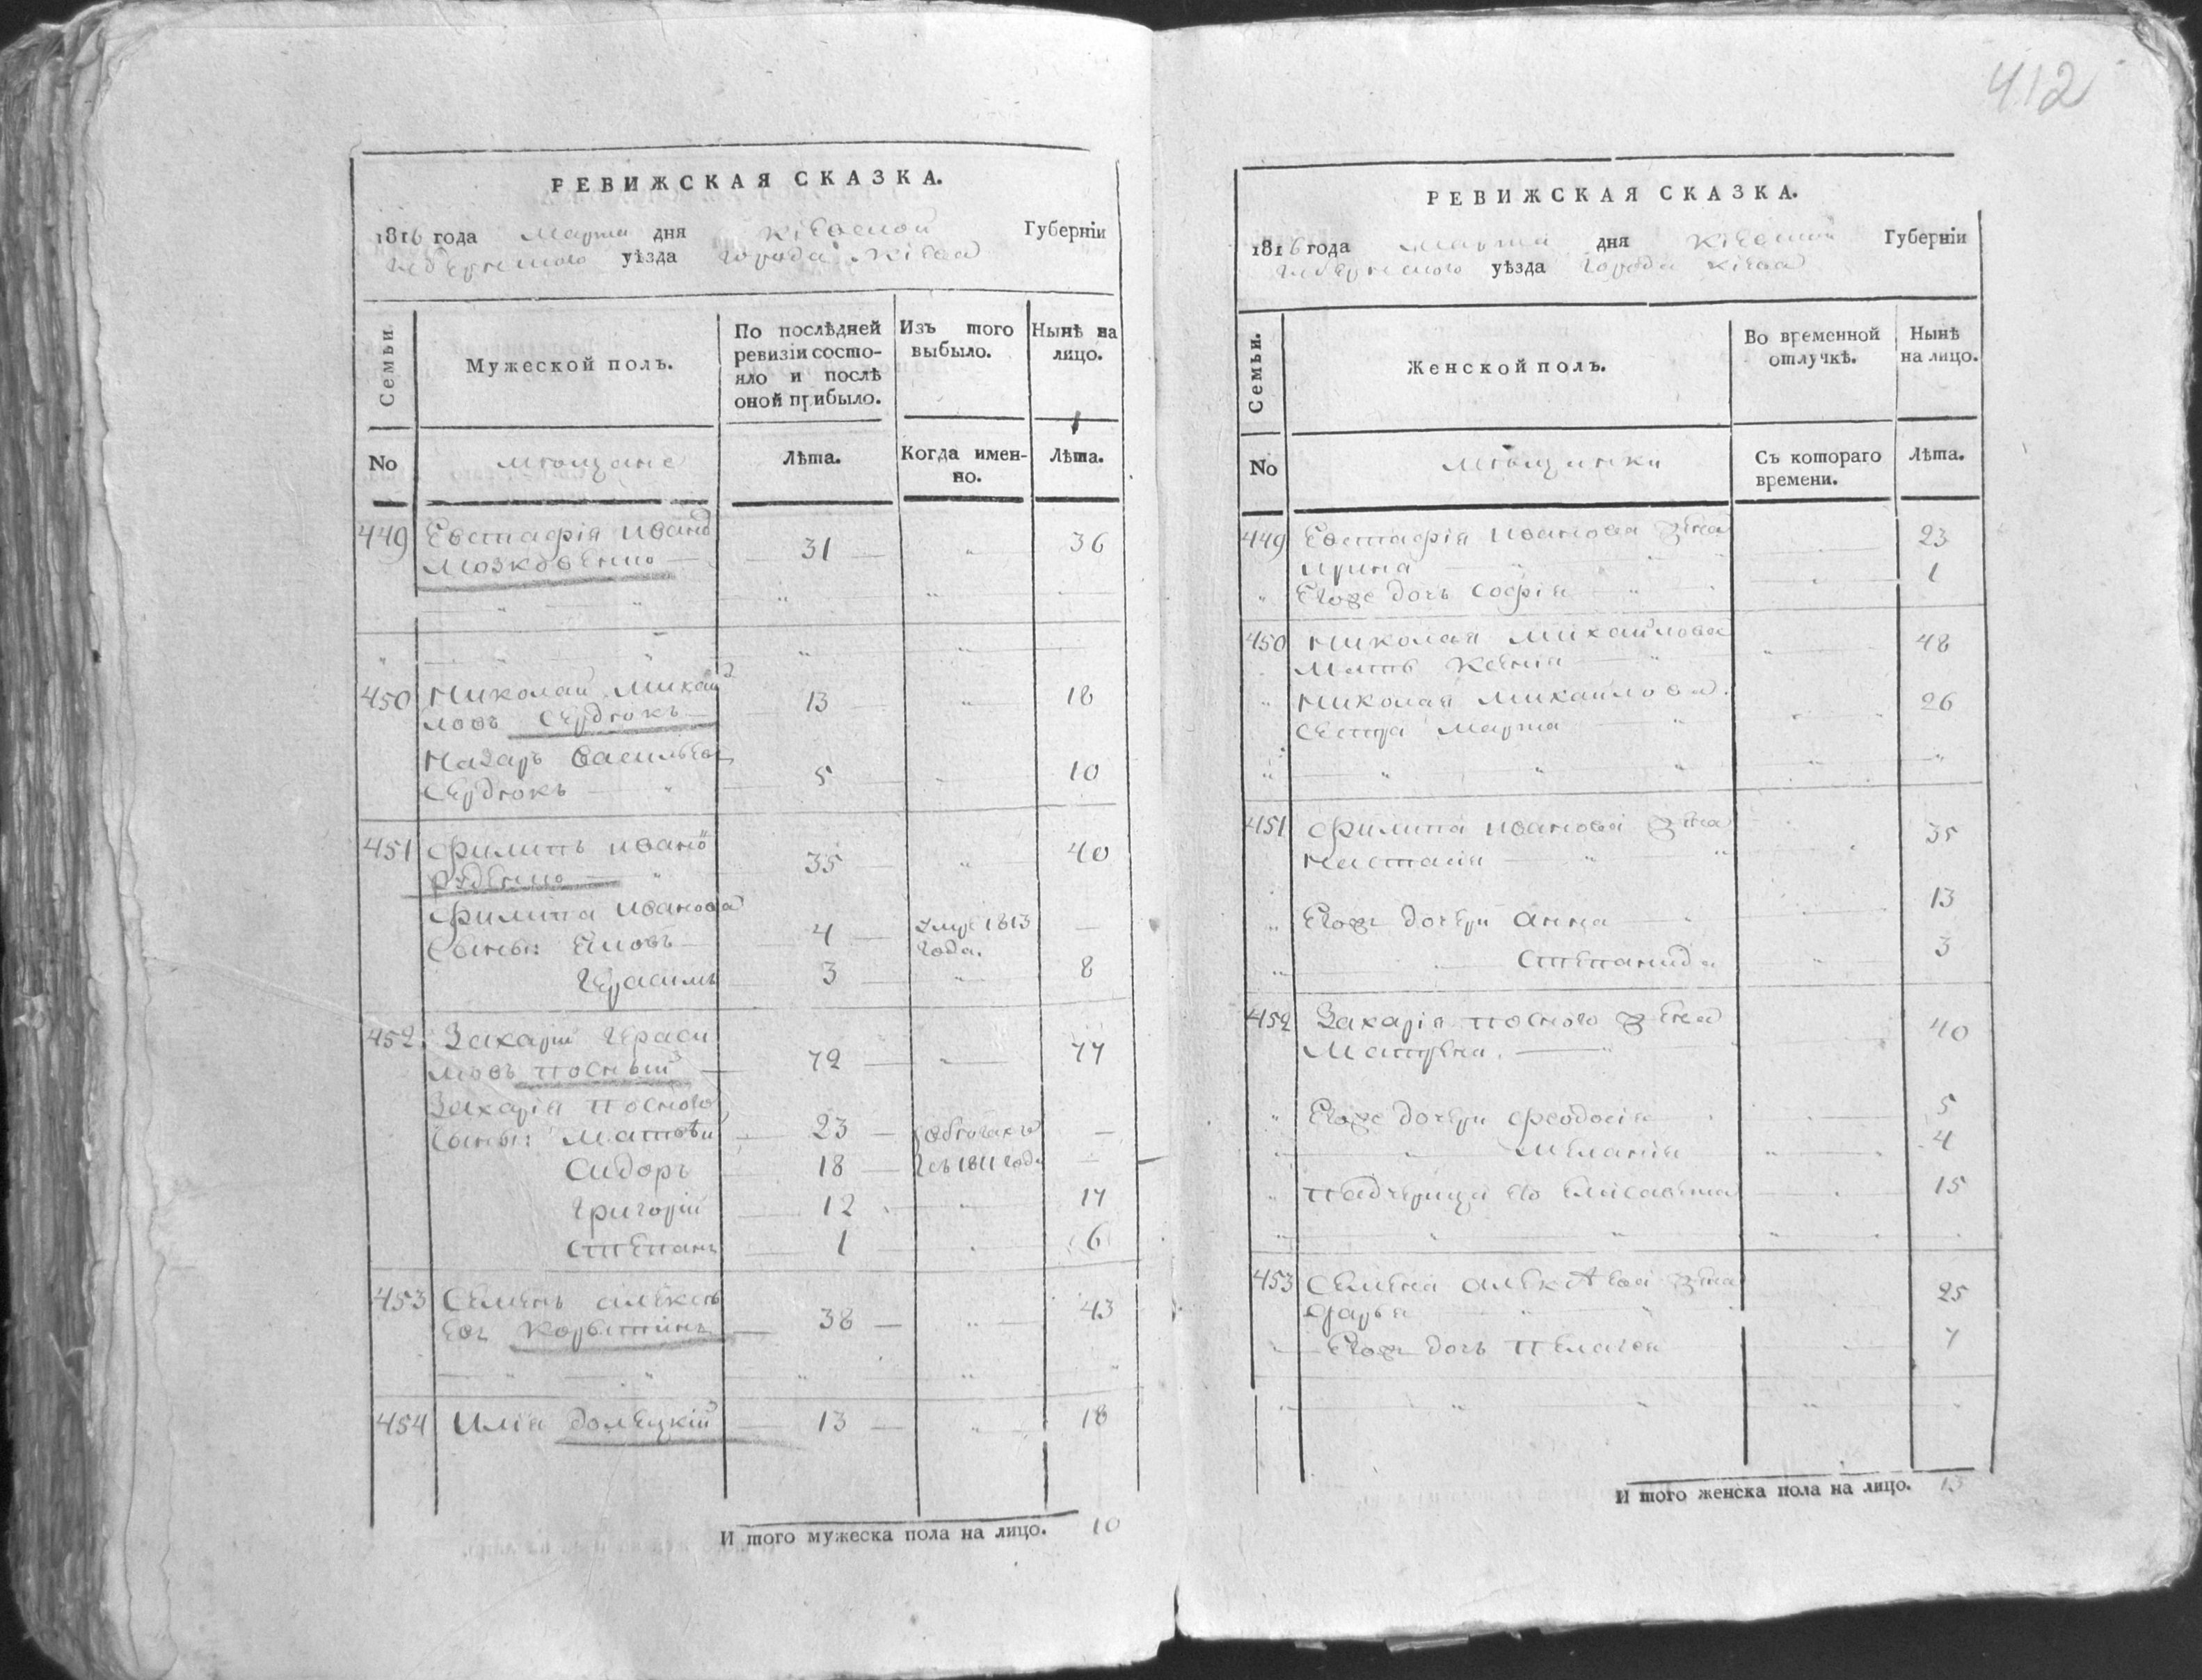 412
РЕВИЖСКАЯ СКАЗКА.
1816 года Марта дня Кіевской Губерніи
уѣзда города Кіева
Семьи
Мужеской полъ.
По послѣдней ревизіи состояло и послѣ оной прибыло.
Изъ того выбыло.
Нынѣ на лицо.
No
мѣщане
Лѣта.
Когда именно.
Лѣта.
449 Евстафія Иванов
31 36
450 Николай Михай
ловъ Сердюкъ 13 18
Назаръ Васильевъ
Сердюкъ 5 10
451 Филипъ Ивано
Руденко 35 40
Филипа Иванова
сыны: Яковъ 4 умре 1813 года.
Герасимъ 3 8
452 Захарій Гераси
мовъ Посный 72 77
Захарія Посного
сыны: Матвѣй 23 въ бѣгахъ
Сидоръ 18 съ 1811 года
Григорій 12 17
Степанъ 1 6
453 Семенъ Алексѣ
евъ 38 43
454 Илія Долецкій 13 18
И того мужеска пола на лицо. 10
РЕВИЖСКАЯ СКАЗКА.
1816 года Марта дня Кіевской Губерніи
уѣзда города Кіева
Семьи.
Женской полъ.
Во временной отлучкѣ.
Нынѣ на лицо.
No
мѣщанки
Съ котораго времени.
Лѣта.
449 Евстафія Иванова жена
Ирина 23
Егоже дочь Софія 1
450 Николая Михайлова
мать Ксенія 48
Николая Михайлова
сестра Марта 26
451 Филипа Иванова жена
Настасія 35
Егоже дочери Анна 13
Степанида 3
452 Захарія Посного жена
Матрена 40
Егоже дочери Феодосія 5
Меланія 4
Падчерица его Елисавета 15
453 Семена Алексѣева жена
Дарья 25
Егоже дочь Пелагея 7
И того женска пола на лицо. 13